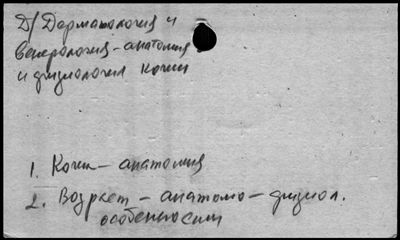 Д/ Дерматология и
венерология - анатомия
и физиология кожи
1. Кожа - анатомия
2. Возраст - анатомо - физиол.
особенности